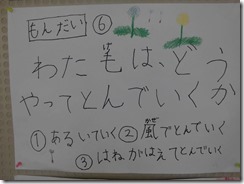 もんだい ⑥
わた毛は、どう
やってとんでいくか
①あるいていく ②風でとんでいく
③はねがはえてとんでいく